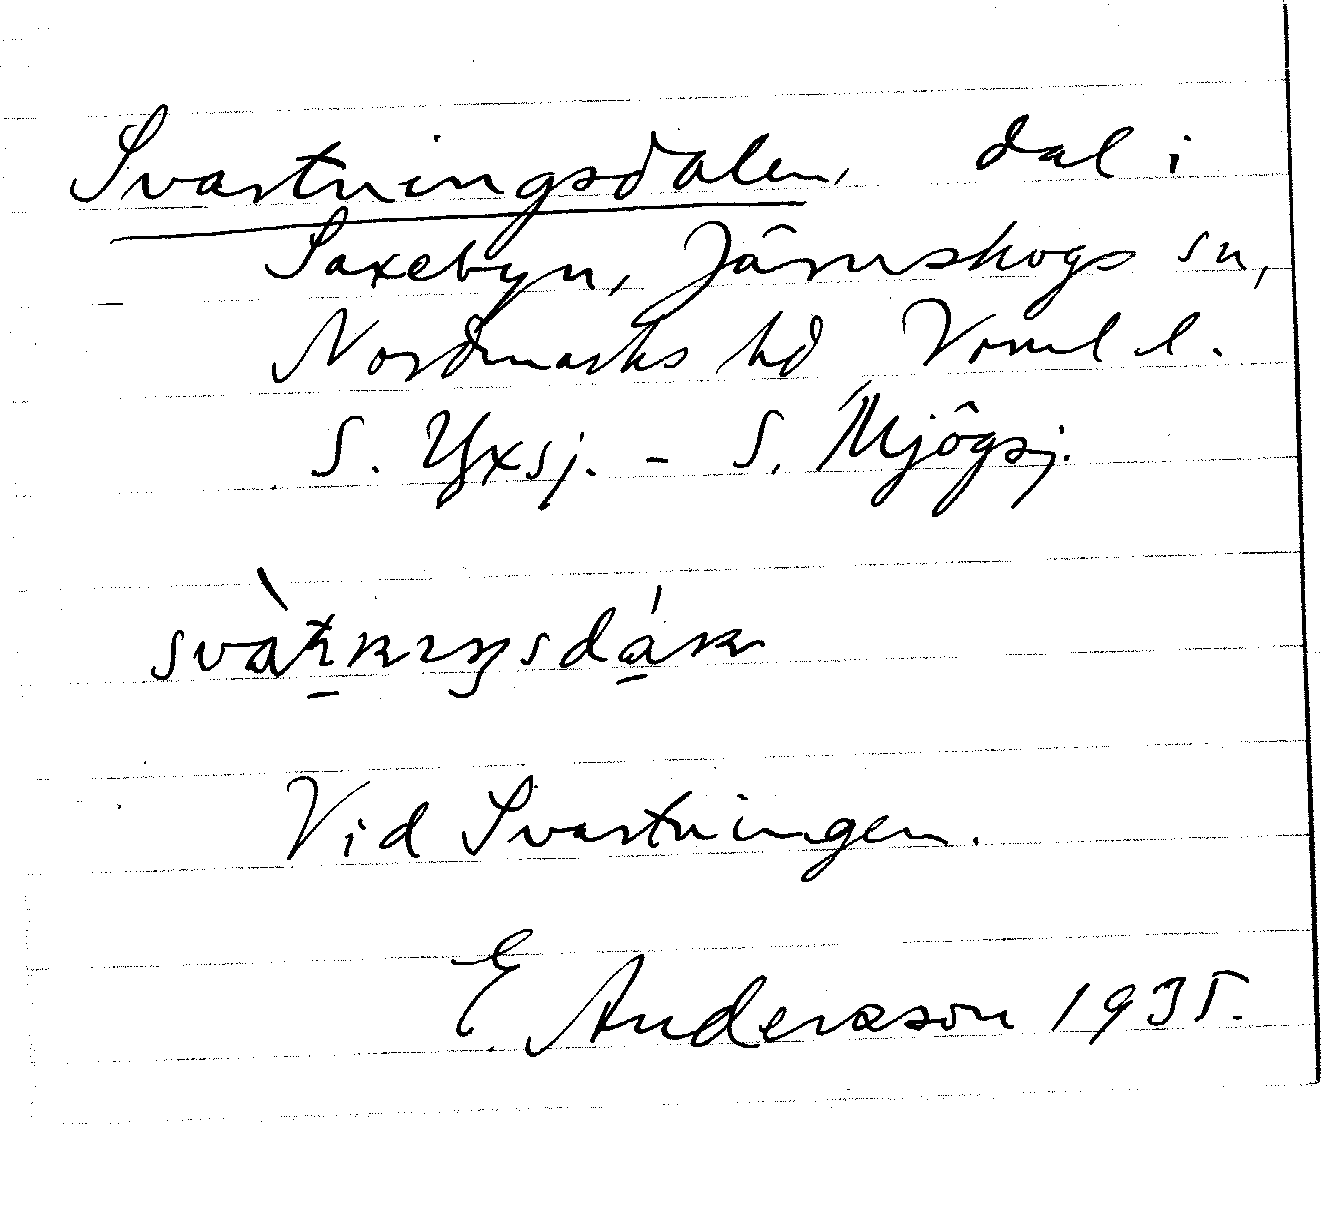 Svartningsdalen, dal i
Saxebyn, Järnskogs sn,
Nordmarks hd Vrml l.
S. Yxsj. - S. Mjögsj.
Vid Svartningen.
E. Andersson 1935.